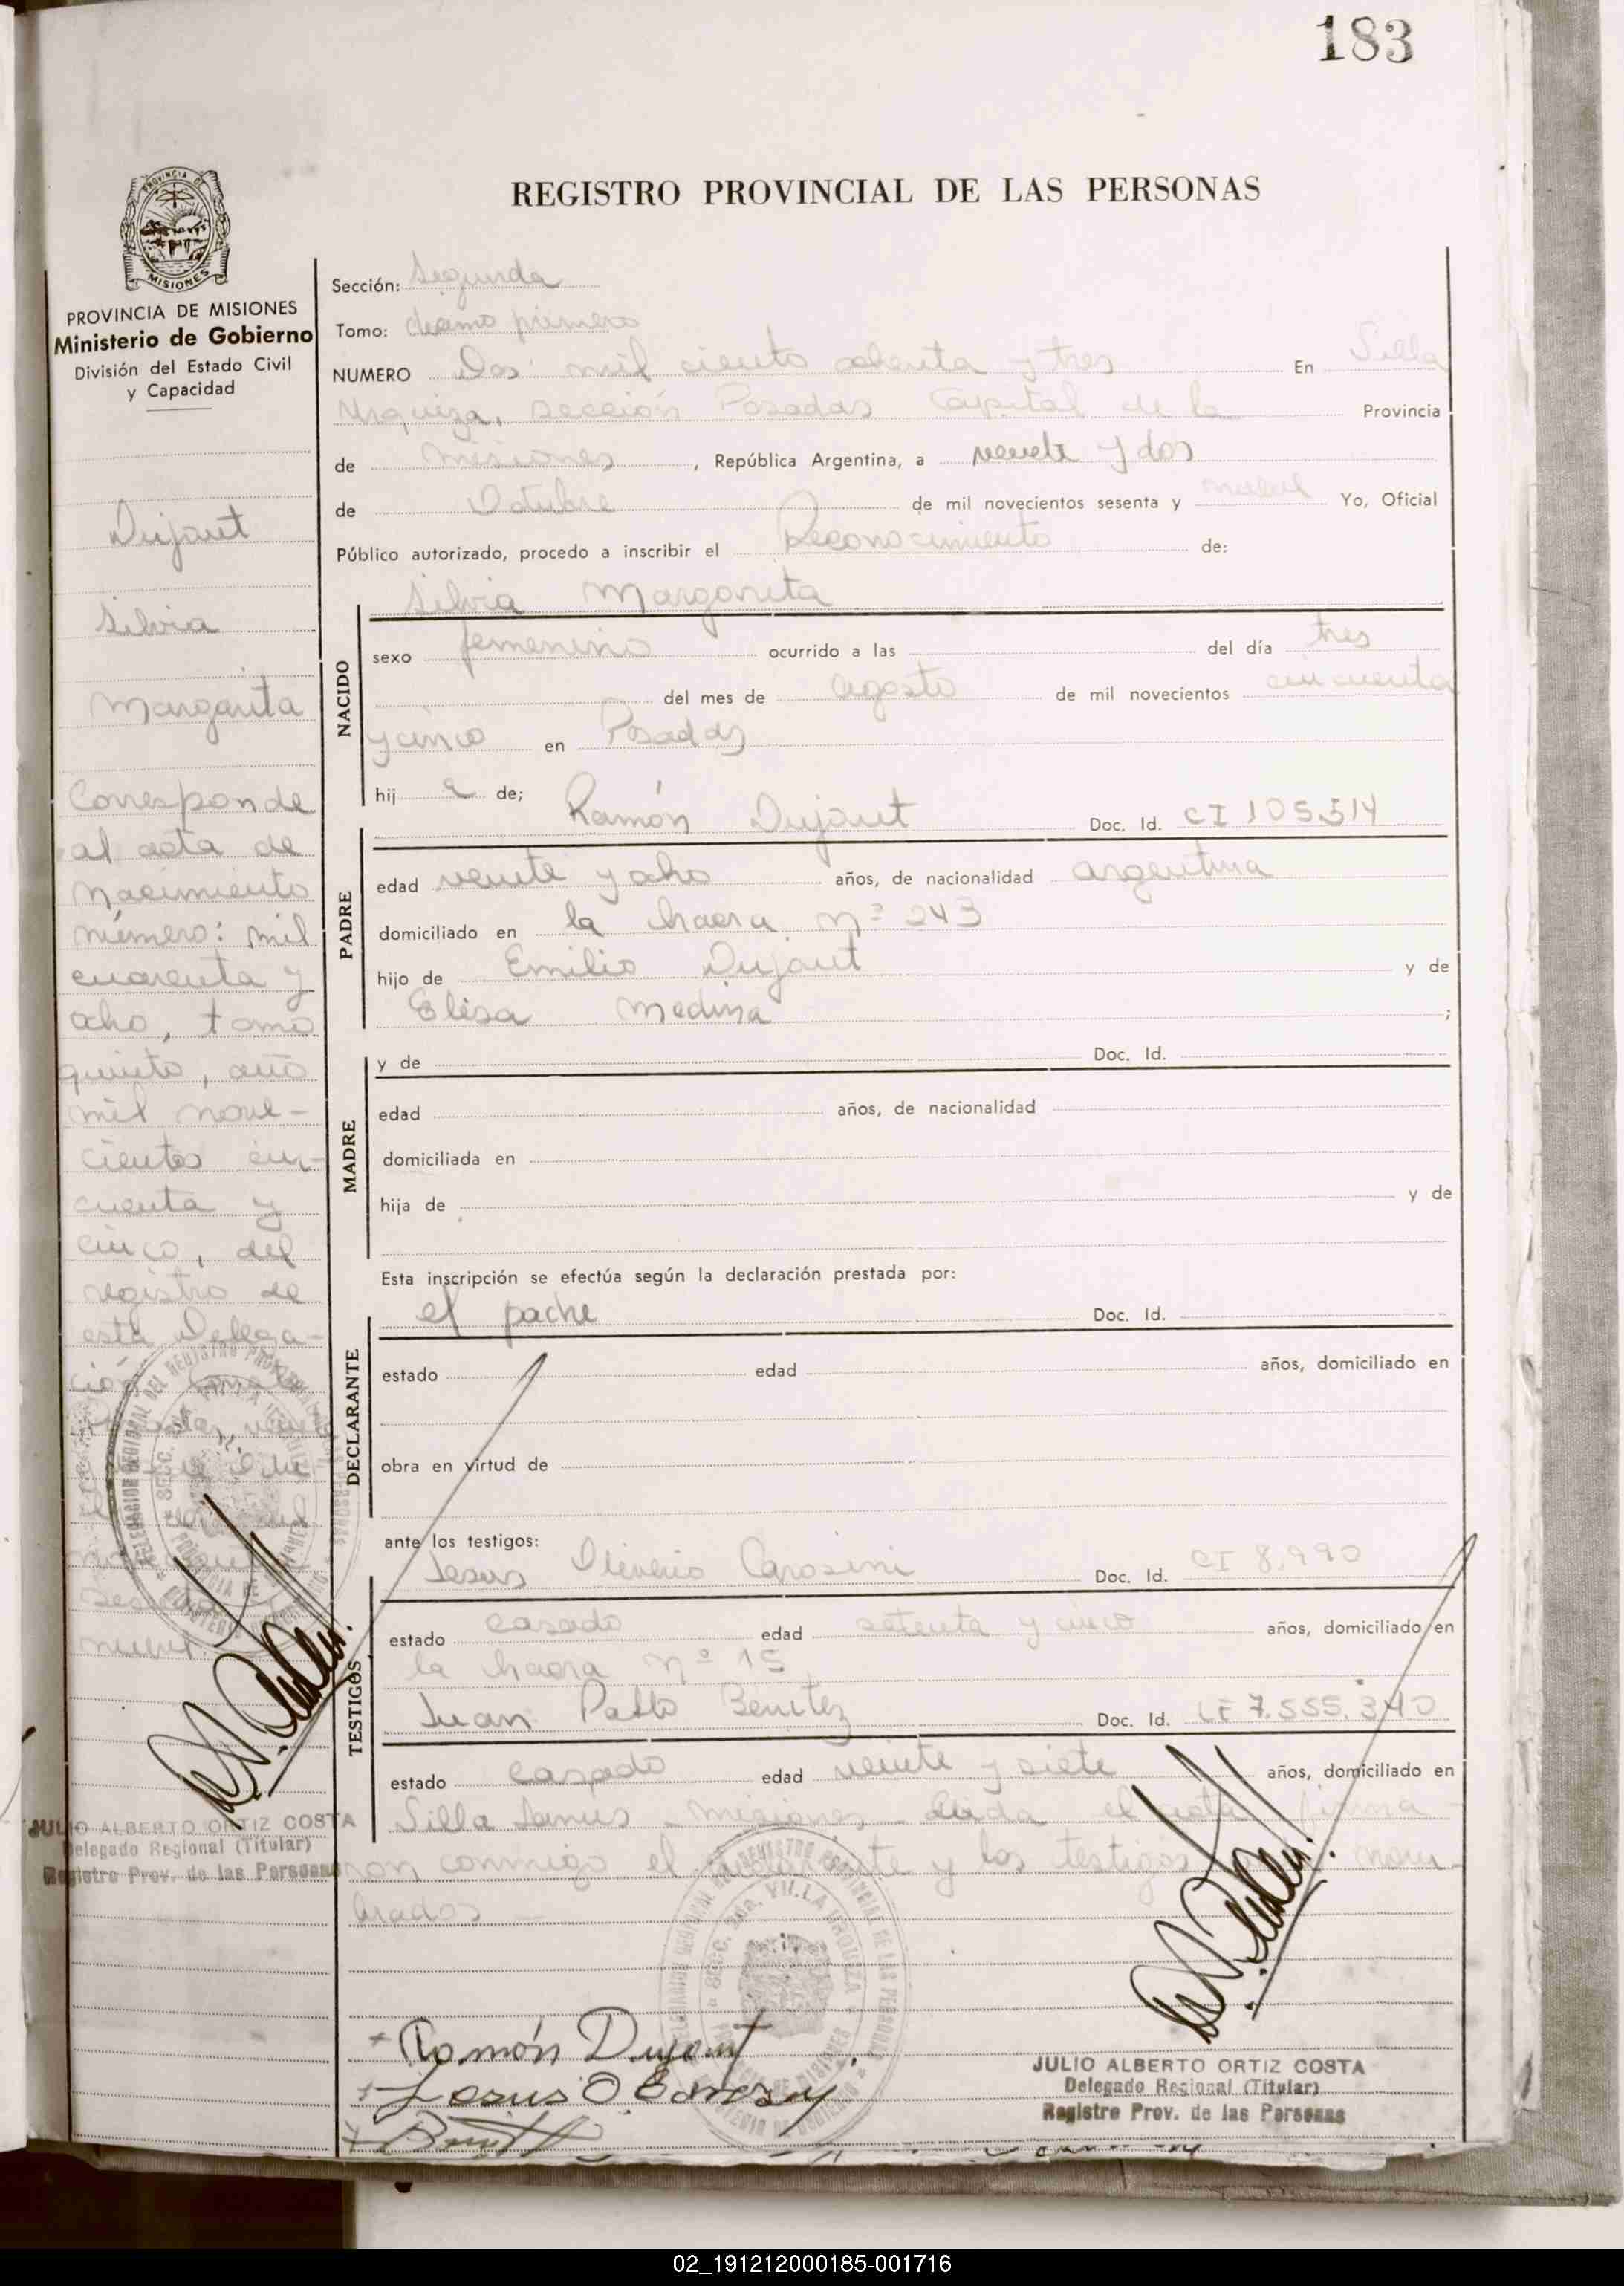 183
REGISTRO PROVINCIAL DE LAS PERSONAS
PROVINCIA DE
MISIONES
PROVINCIA DE MISIONES
Ministerio de Gobierno
División del Estado Civil
y Capacidad
Dujaut
Silvia
Margarita
Corresponde
al acta de
nacimiento
número: mil
cuarenta y
ocho, tomo
quinto, año
mil nove-
cientos cin-
cuenta y
cinco, del
registro de
esta Delega-
ción
JULIO ALBERTO ORTIZ COSTA
Delegado Regional (Titular)
Registro Prov. de las Personas
Sección: Segunda
Tomo: décimo primero
NUMERO Dos mil ciento ochenta y tres En Villa
Urquiza, sección Posadas Capital de la Provincia
de Misiones, República Argentina, a veinte y dos
de Octubre de mil novecientos sesenta y nueve Yo, Oficial
Público autorizado, procedo a inscribir el Reconocimiento de:
Silvia Margarita
NACIDO
sexo femenino ocurrido a las del día tres
del mes de agosto de mil novecientos cincuenta
y cinco en Posadas
hij a de; Ramón Dujaut Doc. Id. CI 105.514
PADRE
edad veinte y ocho años, de nacionalidad argentina
domiciliado en la chacra nº 243
hijo de Emilio Dujaut y de
Elisa Medina ;
MADRE
y de Doc. Id.
edad años, de nacionalidad
domiciliada en
hija de y de
Esta inscripción se efectúa según la declaración prestada por:
el padre Doc. Id.
DECLARANTE
estado edad años, domiciliado en
obra en virtud de
ante los testigos:
TESTIGOS
Jesus Oliverio Doc. Id. CI 8.990
estado casado edad setenta y cinco años, domiciliado en
la chacra nº 15
Juan Pablo Benitez Doc. Id. LE 7.555.340
estado casado edad veinte y siete años, domiciliado en
Villa Lanus - Misiones - Leida el acta firma-
ron conmigo el y los testigos nom-
brados
Ramón Dujaut
JULIO ALBERTO ORTIZ COSTA
Delegado Regional (Titular)
Registro Prov. de las Personas
02_191212000185-001716